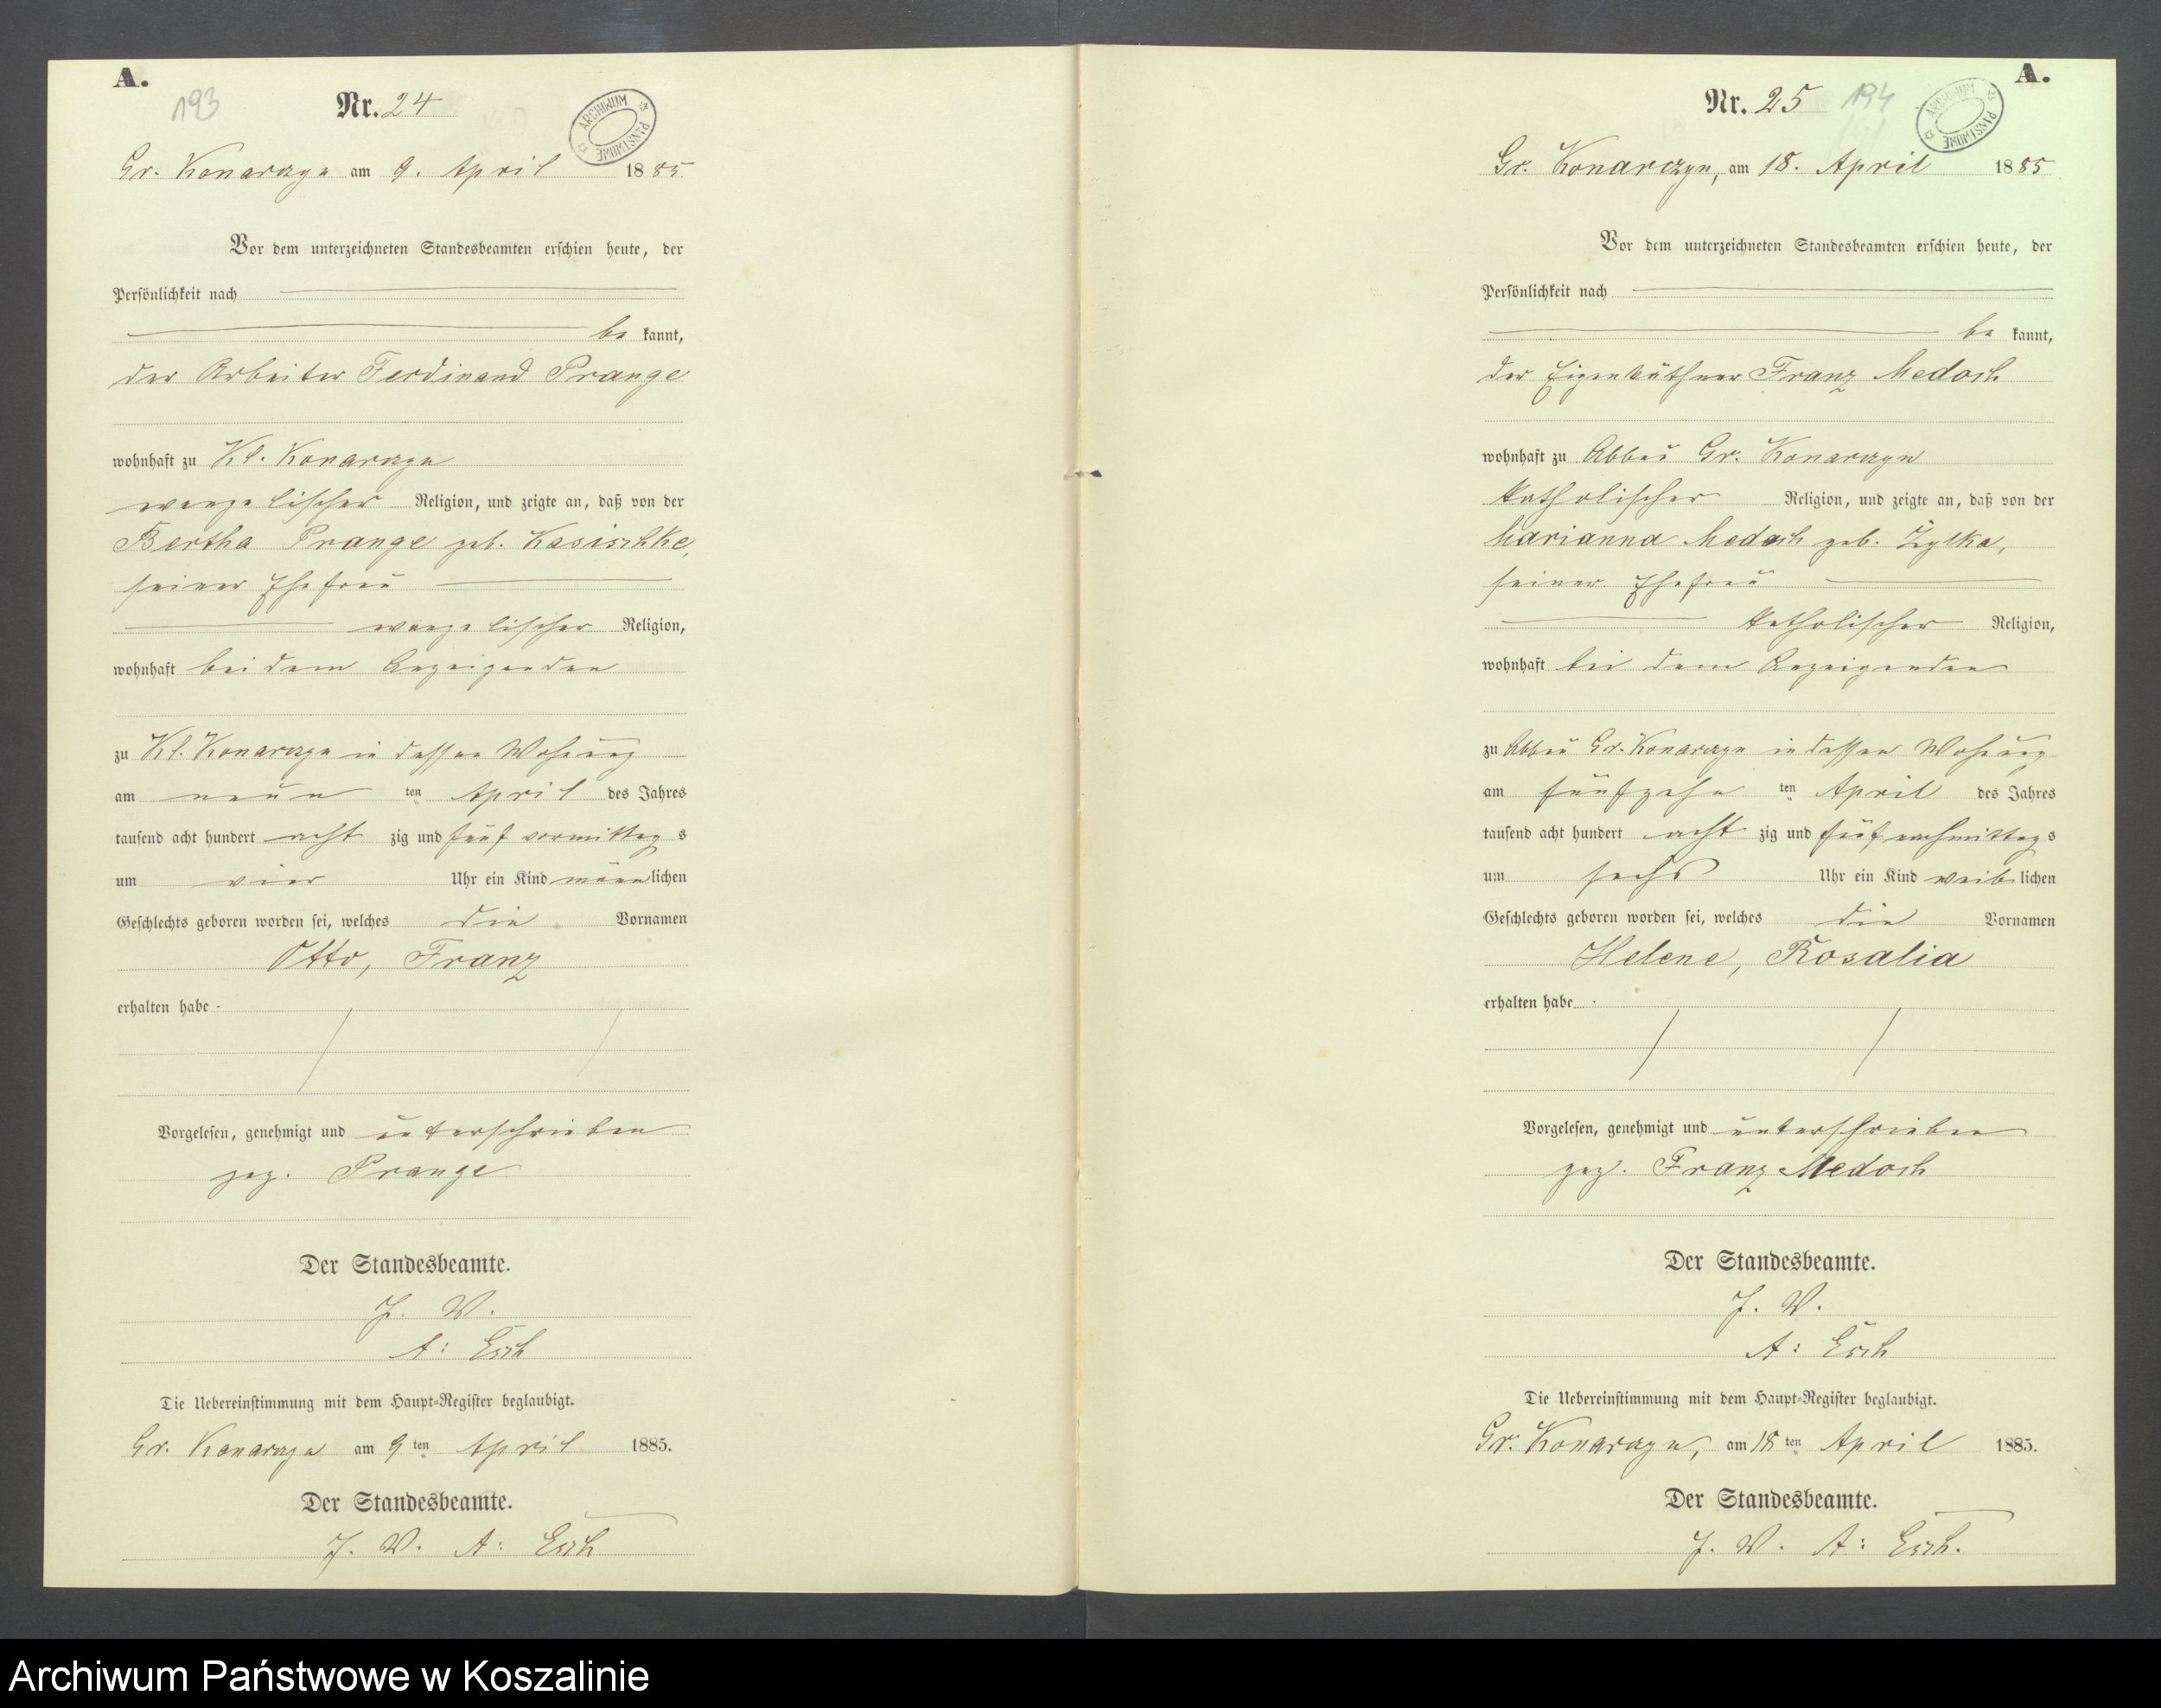 A.
193
Nr. 24
ARCHIWUM PAŃSTWOWE
Gr. Konarczyn am 9. April 1885
Vor dem unterzeichneten Standesbeamten erschien heute, der
Persönlichkeit nach
be kannt,
der Arbeiter Ferdinand Prange
wohnhaft zu Kl. Konarczyn
evangelischer Religion, und zeigte an, daß von der
Bertha Prange geb. Kasischke,
seiner Ehefrau
evangelischer Religion,
wohnhaft bei dem Anzeigenden
zu Kl. Konarczyn in dessen Wohnung
am neun ten April des Jahres
tausend acht hundert acht zig und fünf vormittag s
um vier Uhr ein Kind männlichen
Geschlechts geboren worden sei, welches die Vornamen
Otto, Franz
erhalten habe.
Vorgelesen, genehmigt und unterschrieben
gez. Prange
Der Standesbeamte.
J. V.
A: Esch
Die Uebereinstimmung mit dem Haupt-Register beglaubigt.
Gr. Konarczyn am 9 ten April 1885.
Der Standesbeamte.
J. V. A: Esch
A.
Nr. 25
194
ARCHIWUM PAŃSTWOWE
Gr. Konarczyn, am 18. April 1885
Vor dem unterzeichneten Standesbeamten erschien heute, der
Persönlichkeit nach
be kannt,
der Eigenkäthner Franz Medosch
wohnhaft zu Abbau Gr. Konarczyn
katholischer Religion, und zeigte an, daß von der
Marianna Medosch geb. Żylka,
seiner Ehefrau
katholischer Religion,
wohnhaft bei dem Anzeigenden
zu Abbau Gr. Konarczyn in dessen Wohnung
am fünfzehn ten April des Jahres
tausend acht hundert acht zig und fünf nachmittag s
um sechs Uhr ein Kind weiblichen
Geschlechts geboren worden sei, welches die Vornamen
Helene, Rosalia
erhalten habe.
Vorgelesen, genehmigt und unterschrieben
gez. Franz Medosch
Der Standesbeamte.
J. V.
A: Esch
Die Uebereinstimmung mit dem Haupt-Register beglaubigt.
Gr. Konarczyn, am 18 ten April 1885.
Der Standesbeamte.
J. V. A: Esch.
Archiwum Państwowe w Koszalinie